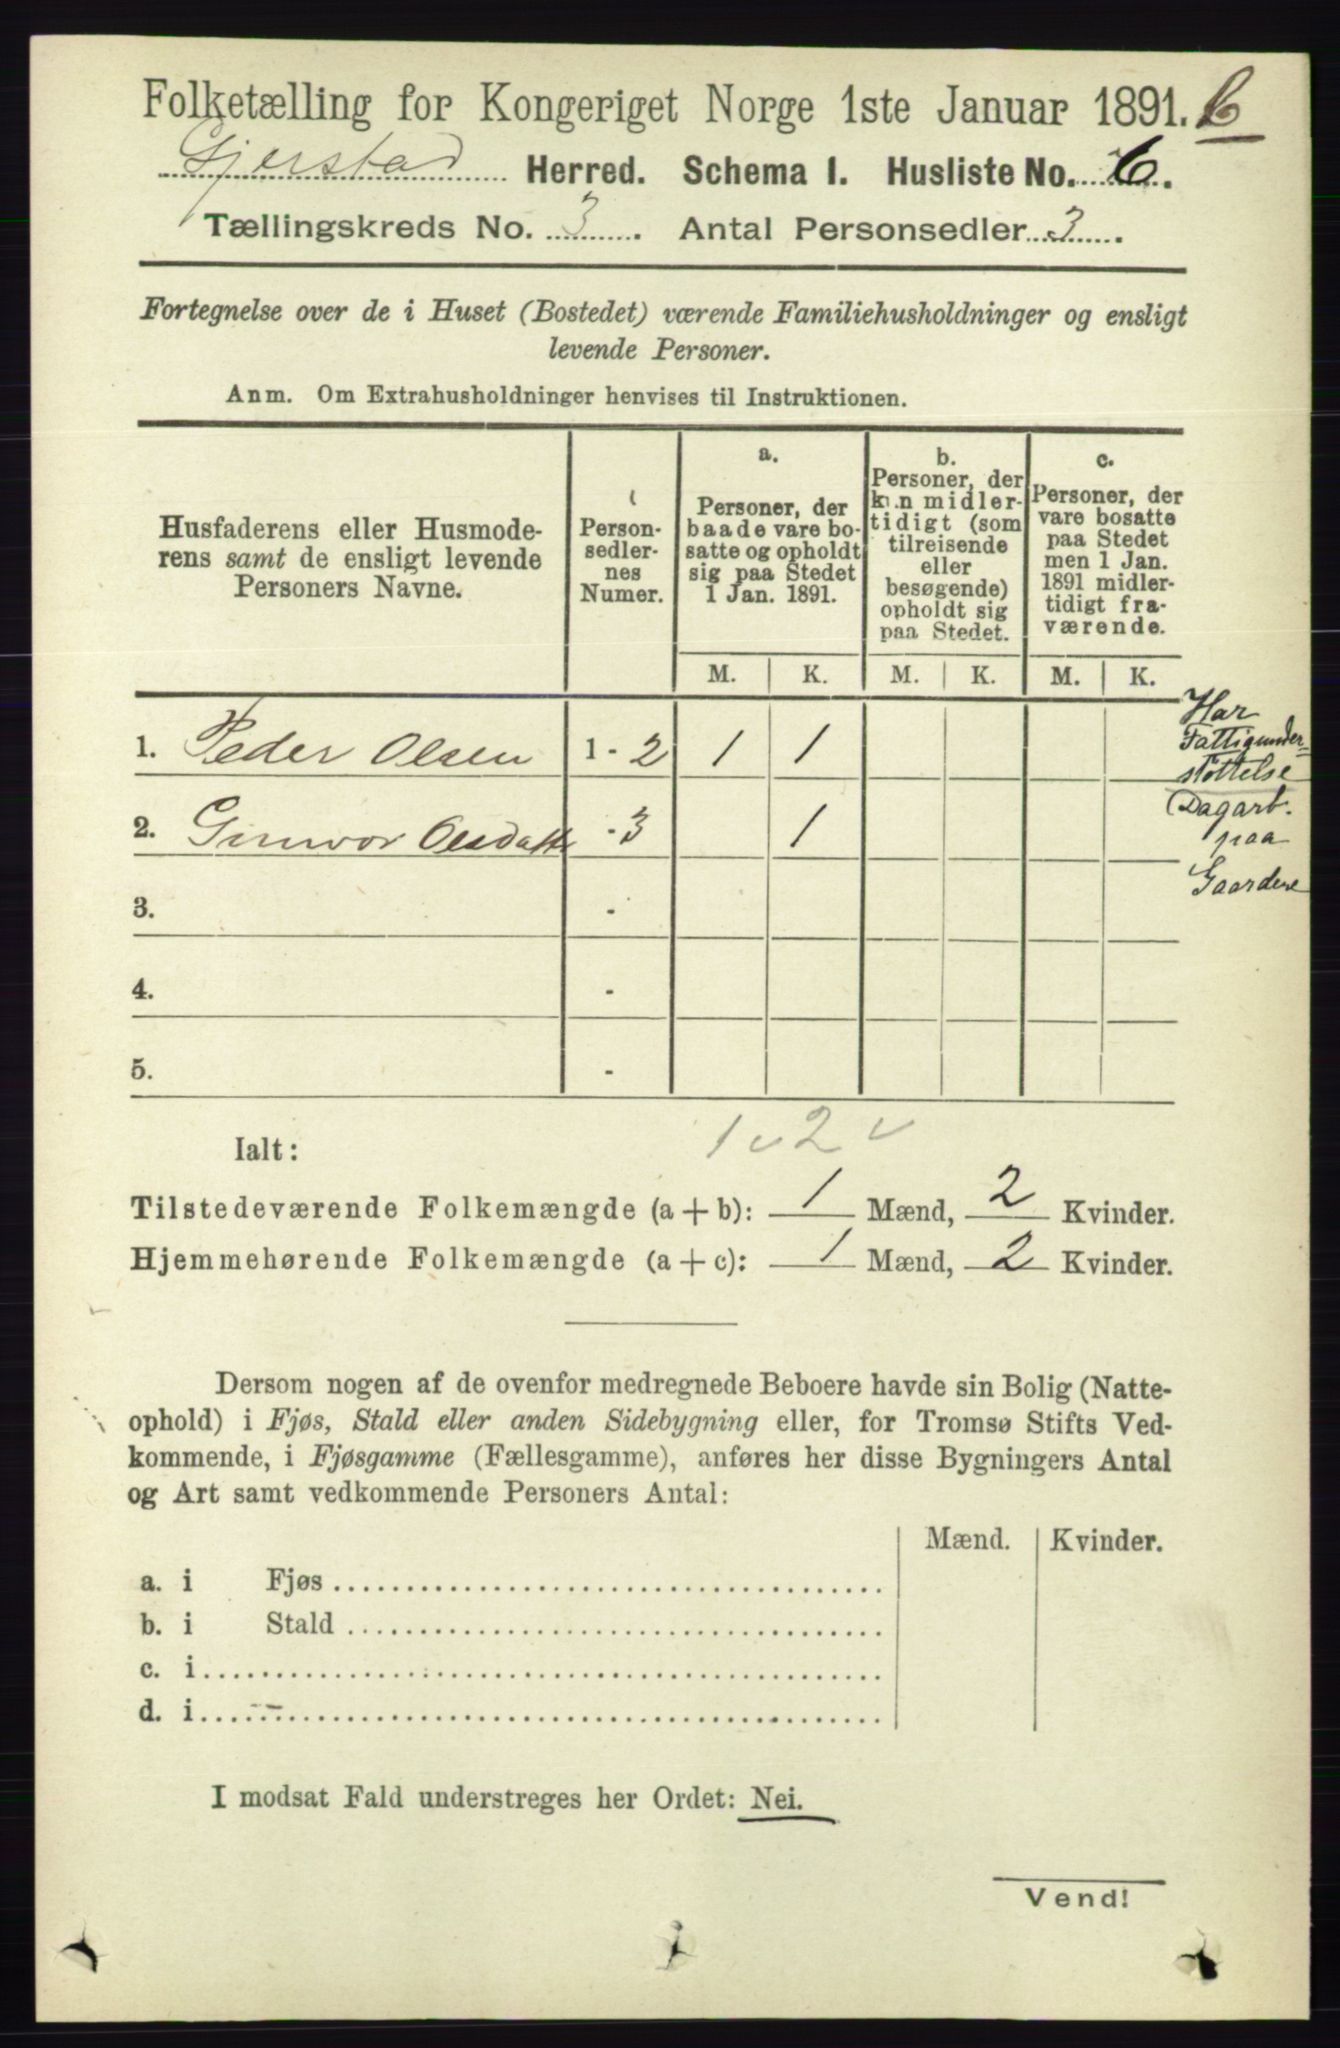 Folketælling for Kongeriget Norge 1ste Januar 1891.
6
Gjerstad Herred. Schema I. Husliste No. 6.
Tællingskreds No. 3. Antal Personsedler 3.
Fortegnelse over de i Huset (Bostedet) værende Familiehusholdninger og ensligt
levende Personer.
Anm. Om Extrahusholdninger henvises til Instruktionen.
Husfaderens eller Husmode-
rens samt de ensligt levende
Personers Navne.
Person-
sedler-
nes
Numer.
a.
Personer, der
baade vare bo-
satte og opholdt
sig paa Stedet
1 Jan. 1891.
b.
Personer, der
kun midler-
tidigt (som
tilreisende
eller
besøgende)
opholdt sig
paa Stedet.
c.
Personer, der
vare bosatte
paa Stedet
men 1 Jan.
1891 midler-
tidigt fra-
værende.
M. K. M. K. M. K.
1. Peder Olsen 1 - 2 1 1
Har
Fattigunder-
støttelse
2. Gunvor Olsdatter - 3 1
(Dagarb.
paa
Gaardene
3. -
4. -
5. -
1 v 2 v
Ialt:
Tilstedeværende Folkemængde (a + b): 1 Mænd, 2 Kvinder.
Hjemmehørende Folkemængde (a + c): 1 Mænd, 2 Kvinder.
Dersom nogen af de ovenfor medregnede Beboere havde sin Bolig (Natte-
ophold) i Fjøs, Stald eller anden Sidebygning eller, for Tromsø Stifts Ved-
kommende, i Fjøsgamme (Fællesgamme), anføres her disse Bygningers Antal
og Art samt vedkommende Personers Antal:
Mænd. Kvinder.
a. i Fjøs
b. i Stald
c. i
d. i
I modsat Fald understreges her Ordet: Nei.
Vend!